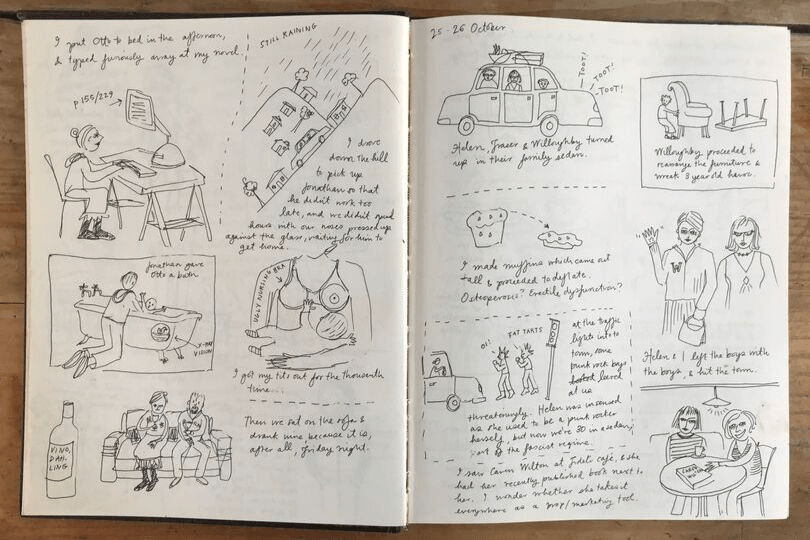 I put Otto to bed in the afternoon,
& typed furiously away at my novel.
p 155/229
STILL RAINING
I drove
down the hill
to pick up
Jonathan so that
he didn't work too
late, and we didn't spend
hours with our noses pressed up
against the glass, waiting for him to
get home.
Jonathan gave
Otto a bath
X-RAY
VISION
UGLY NURSING BRA
I got my tits out for the thousandth
time...
VINO,
DAH-
LING
Then we sat on the sofa &
drank wine because it is,
after all, friday night.
25-26 October
TOOT!
TOOT!
TOOT!
Helen, Fraser & Willoughby turned
up in their family sedan.
Willoughby proceeded to
rearrange the furniture &
wreak 3 year old havoc.
I made muffins which came out
tall & proceeded to deflate.
Osteoporosis? Erectile dysfunction?
W
Helen & I left the boys with
the boys, & hit the town.
OI!
FAT TARTS
at the traffic
lights into
town, some
punk rock boys
leered
at us
threateningly. Helen was incensed
as she used to be a punk rocker
herself, but now we're 30 in a sedan,
part of the fascist regime.
I saw Carin Wilton at Fidel's café, & she
had her recently published book next to
her. I wonder whether she takes it
everywhere as a prop/marketing tool.